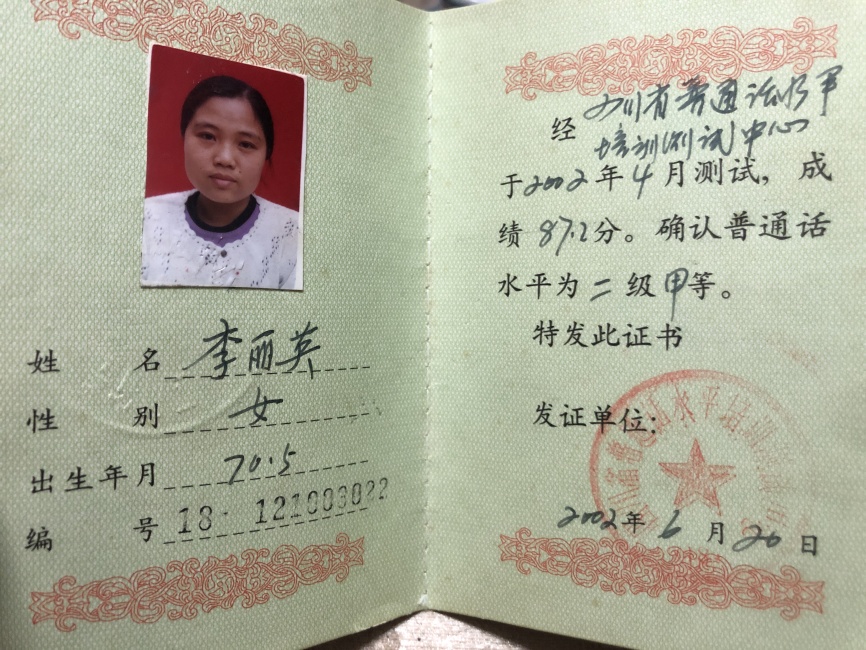 姓名 李丽英
性别 女
出生年月 70.5
编号 18-121003022
经 四川省普通话水平
培训测试中心
于2002年4月测试，成
绩87.2分。确认普通话
水平为二级甲等。
特发此证书
发证单位：
2002年6月20日